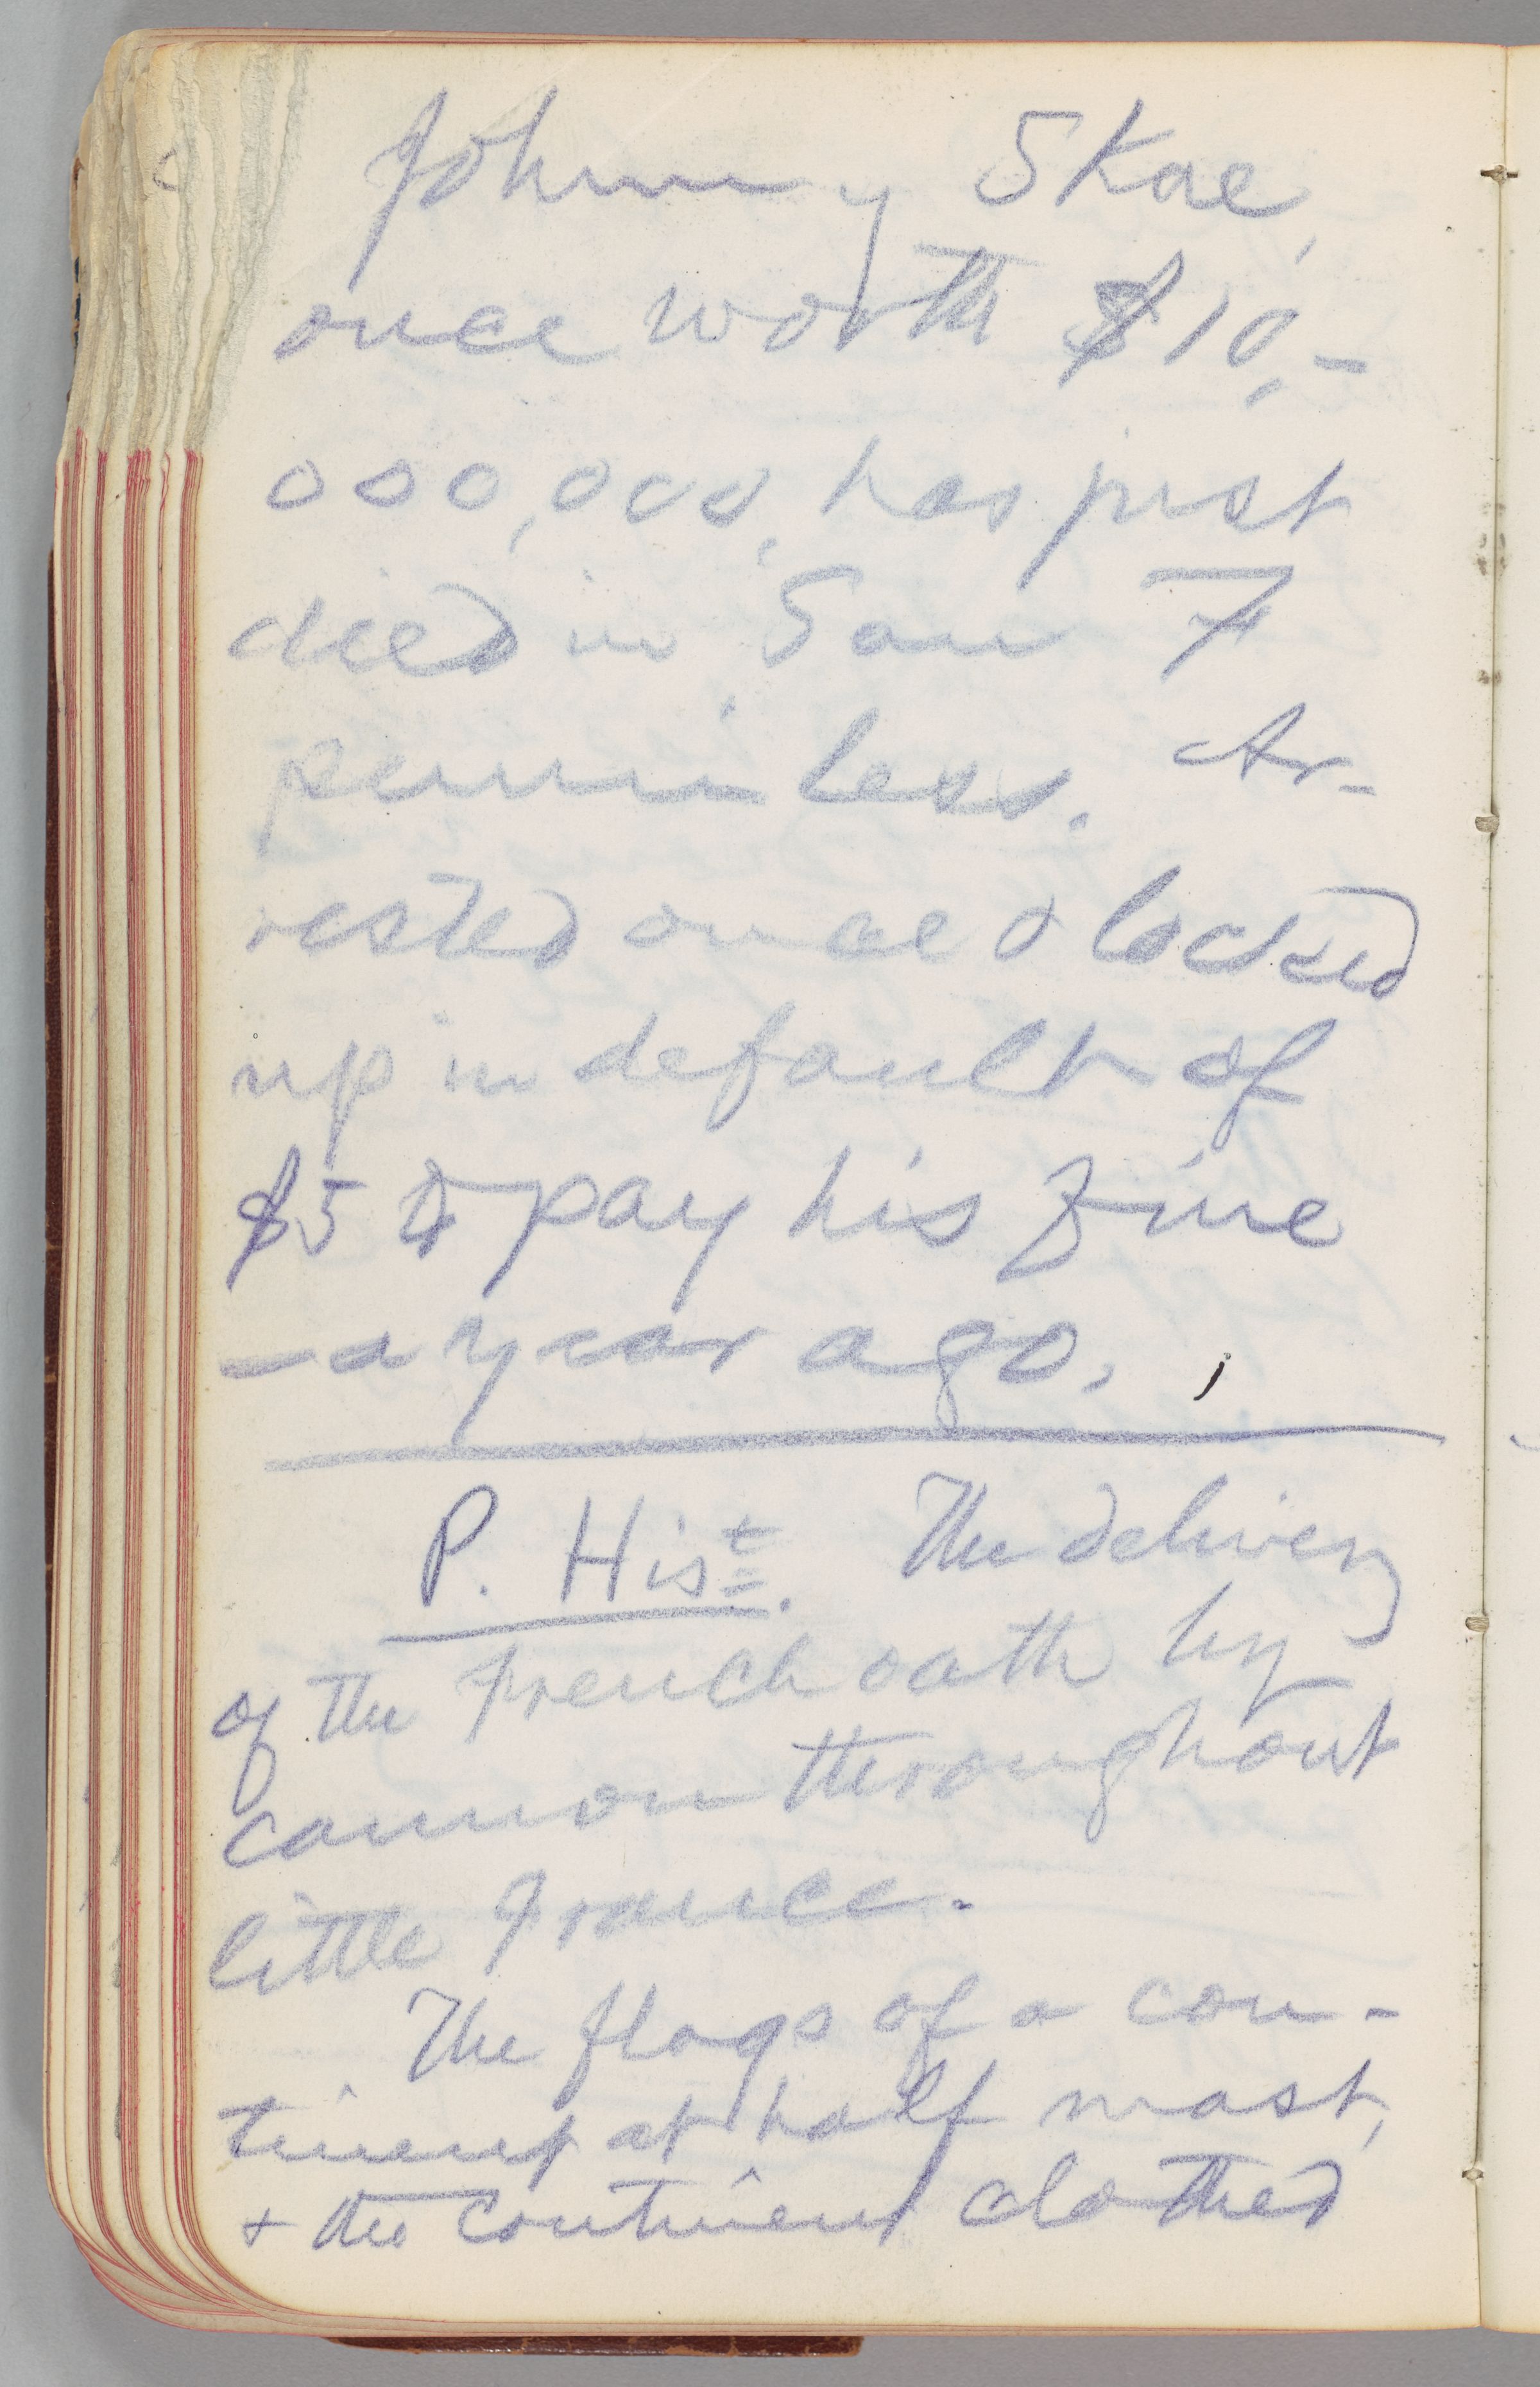 Johnny Skae,
once worth $10,-
000,000, has just
died in San F
penniless. Ar-
rested once & locked
up in default of
$5 to pay his fine
— a year ago.
P. Hist. The delivery
of the French oath by
cannon throughout
little France.
The flags of a con-
tinent at half mast,
& the continent clothed